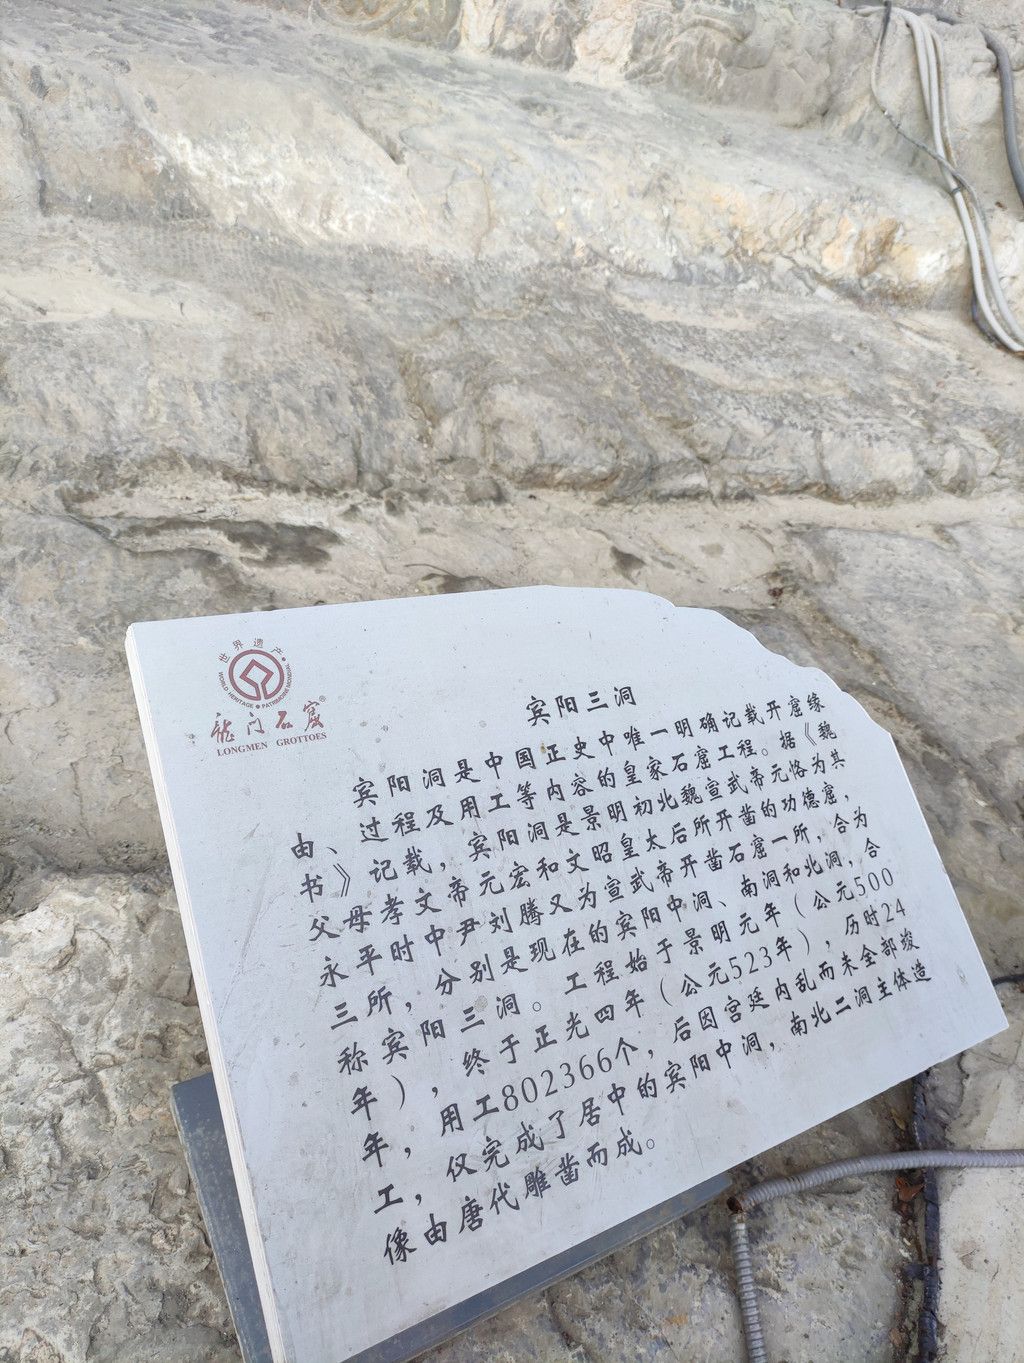 世界遗产
WORLD HERITAGE • PATRIMOINE MONDIAL
龙门石窟®
LONGMEN GROTTOES
宾阳三洞
宾阳洞是中国正史中唯一明确记载开窟缘
由、过程及用工等内容的皇家石窟工程。据《魏
书》记载，宾阳洞是景明初北魏宣武帝元恪为其
父母孝文帝元宏和文昭皇太后所开凿的功德窟，
永平时中尹刘腾又为宣武帝开凿石窟一所，合为
三所，分别是现在的宾阳中洞、南洞和北洞，合
称宾阳三洞。工程始于景明元年（公元500
年），终于正光四年（公元523年），历时24
年，用工802366个，后因宫廷内乱而未全部竣
工，仅完成了居中的宾阳中洞，南北二洞主体造
像由唐代雕凿而成。